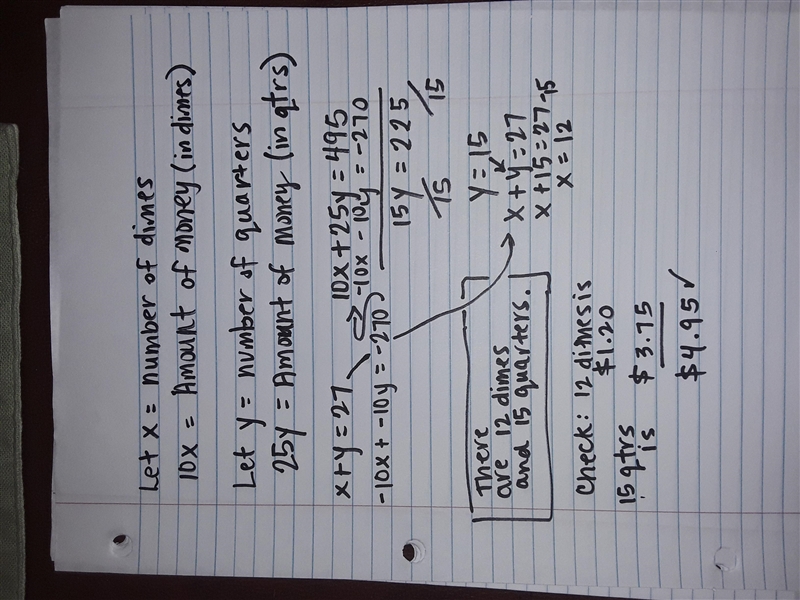 Let x = number of dimes
10x = Amount of money (in dimes)
Let y = number of quarters
25y = Amount of money (in qtrs)
x + y = 27
-10x + -10y = -270
10x + 25y = 495
-10x - 10y = -270
15y = 225
/15 /15
y = 15
x + y = 27
x + 15 = 27 -15
x = 12
There
are 12 dimes
and 15 quarters.
Check: 12 dimes is
$1.20
15 qtrs
is $3.75
$4.95 ✓